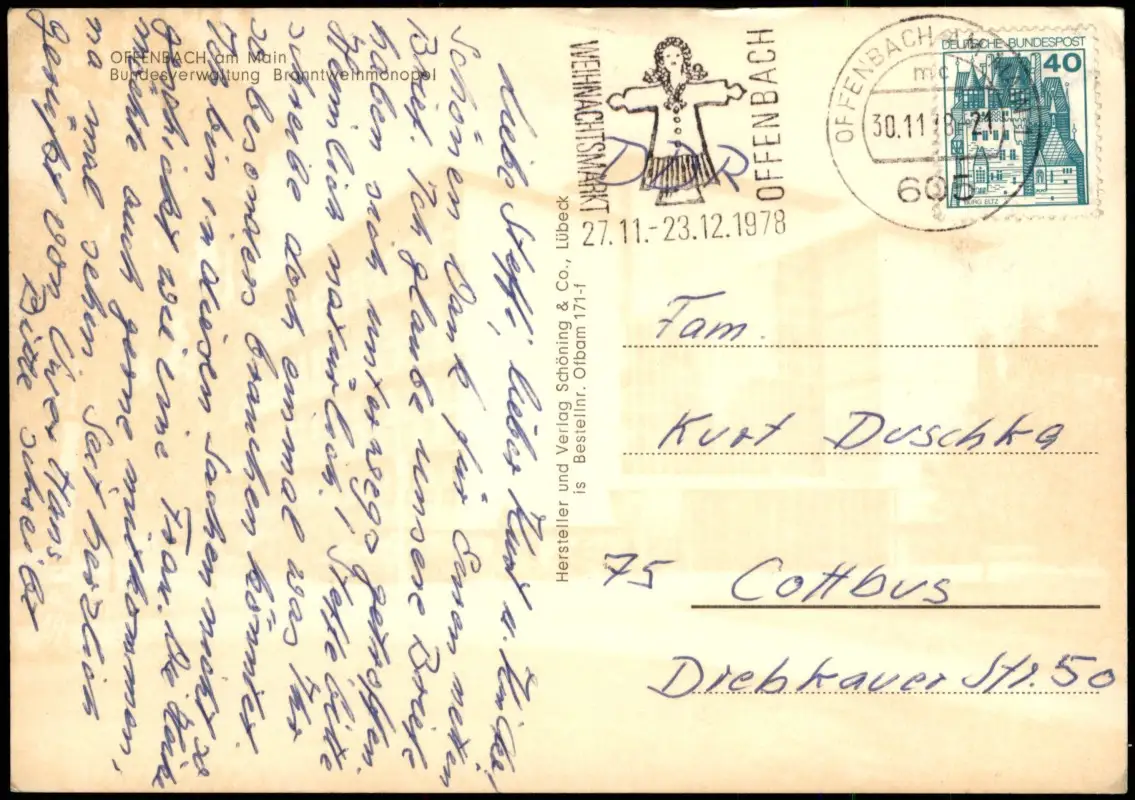 OFFENBACH am Main
Bundesverwaltung Branntweinmonopol
Liebe Steffi, lieber Kurt u. Heike!
Schönen Dank für Euren netten
Brief. Ich glaube unsere Briefe
haben sich unterwegs getroffen.
Heimlich natürlich! Steffi bitte
schreibe doch einmal was Ihr
besonderes brauchen könntet.
Ich bin in diesen Sachen nicht so
geschickt wie eine Frau. Die
möchte auch gerne mitkommen,
na mal sehen. Seit herzlich
gegrüßt von Eurer Hans
Bitte schreibe
Hersteller und Verlag Schöning & Co., Lübeck
is Bestellnr. Ofbam 171-f
WEIHNACHTSMARKT
OFFENBACH
27.11.-23.12.1978
DDR
OFFENBACH
mc
30.11.78-21
605
DEUTSCHE BUNDESPOST
40
BURG ELTZ
Fam.
Kurt Duschka
75 Cottbus
Diebkauer Str. 50